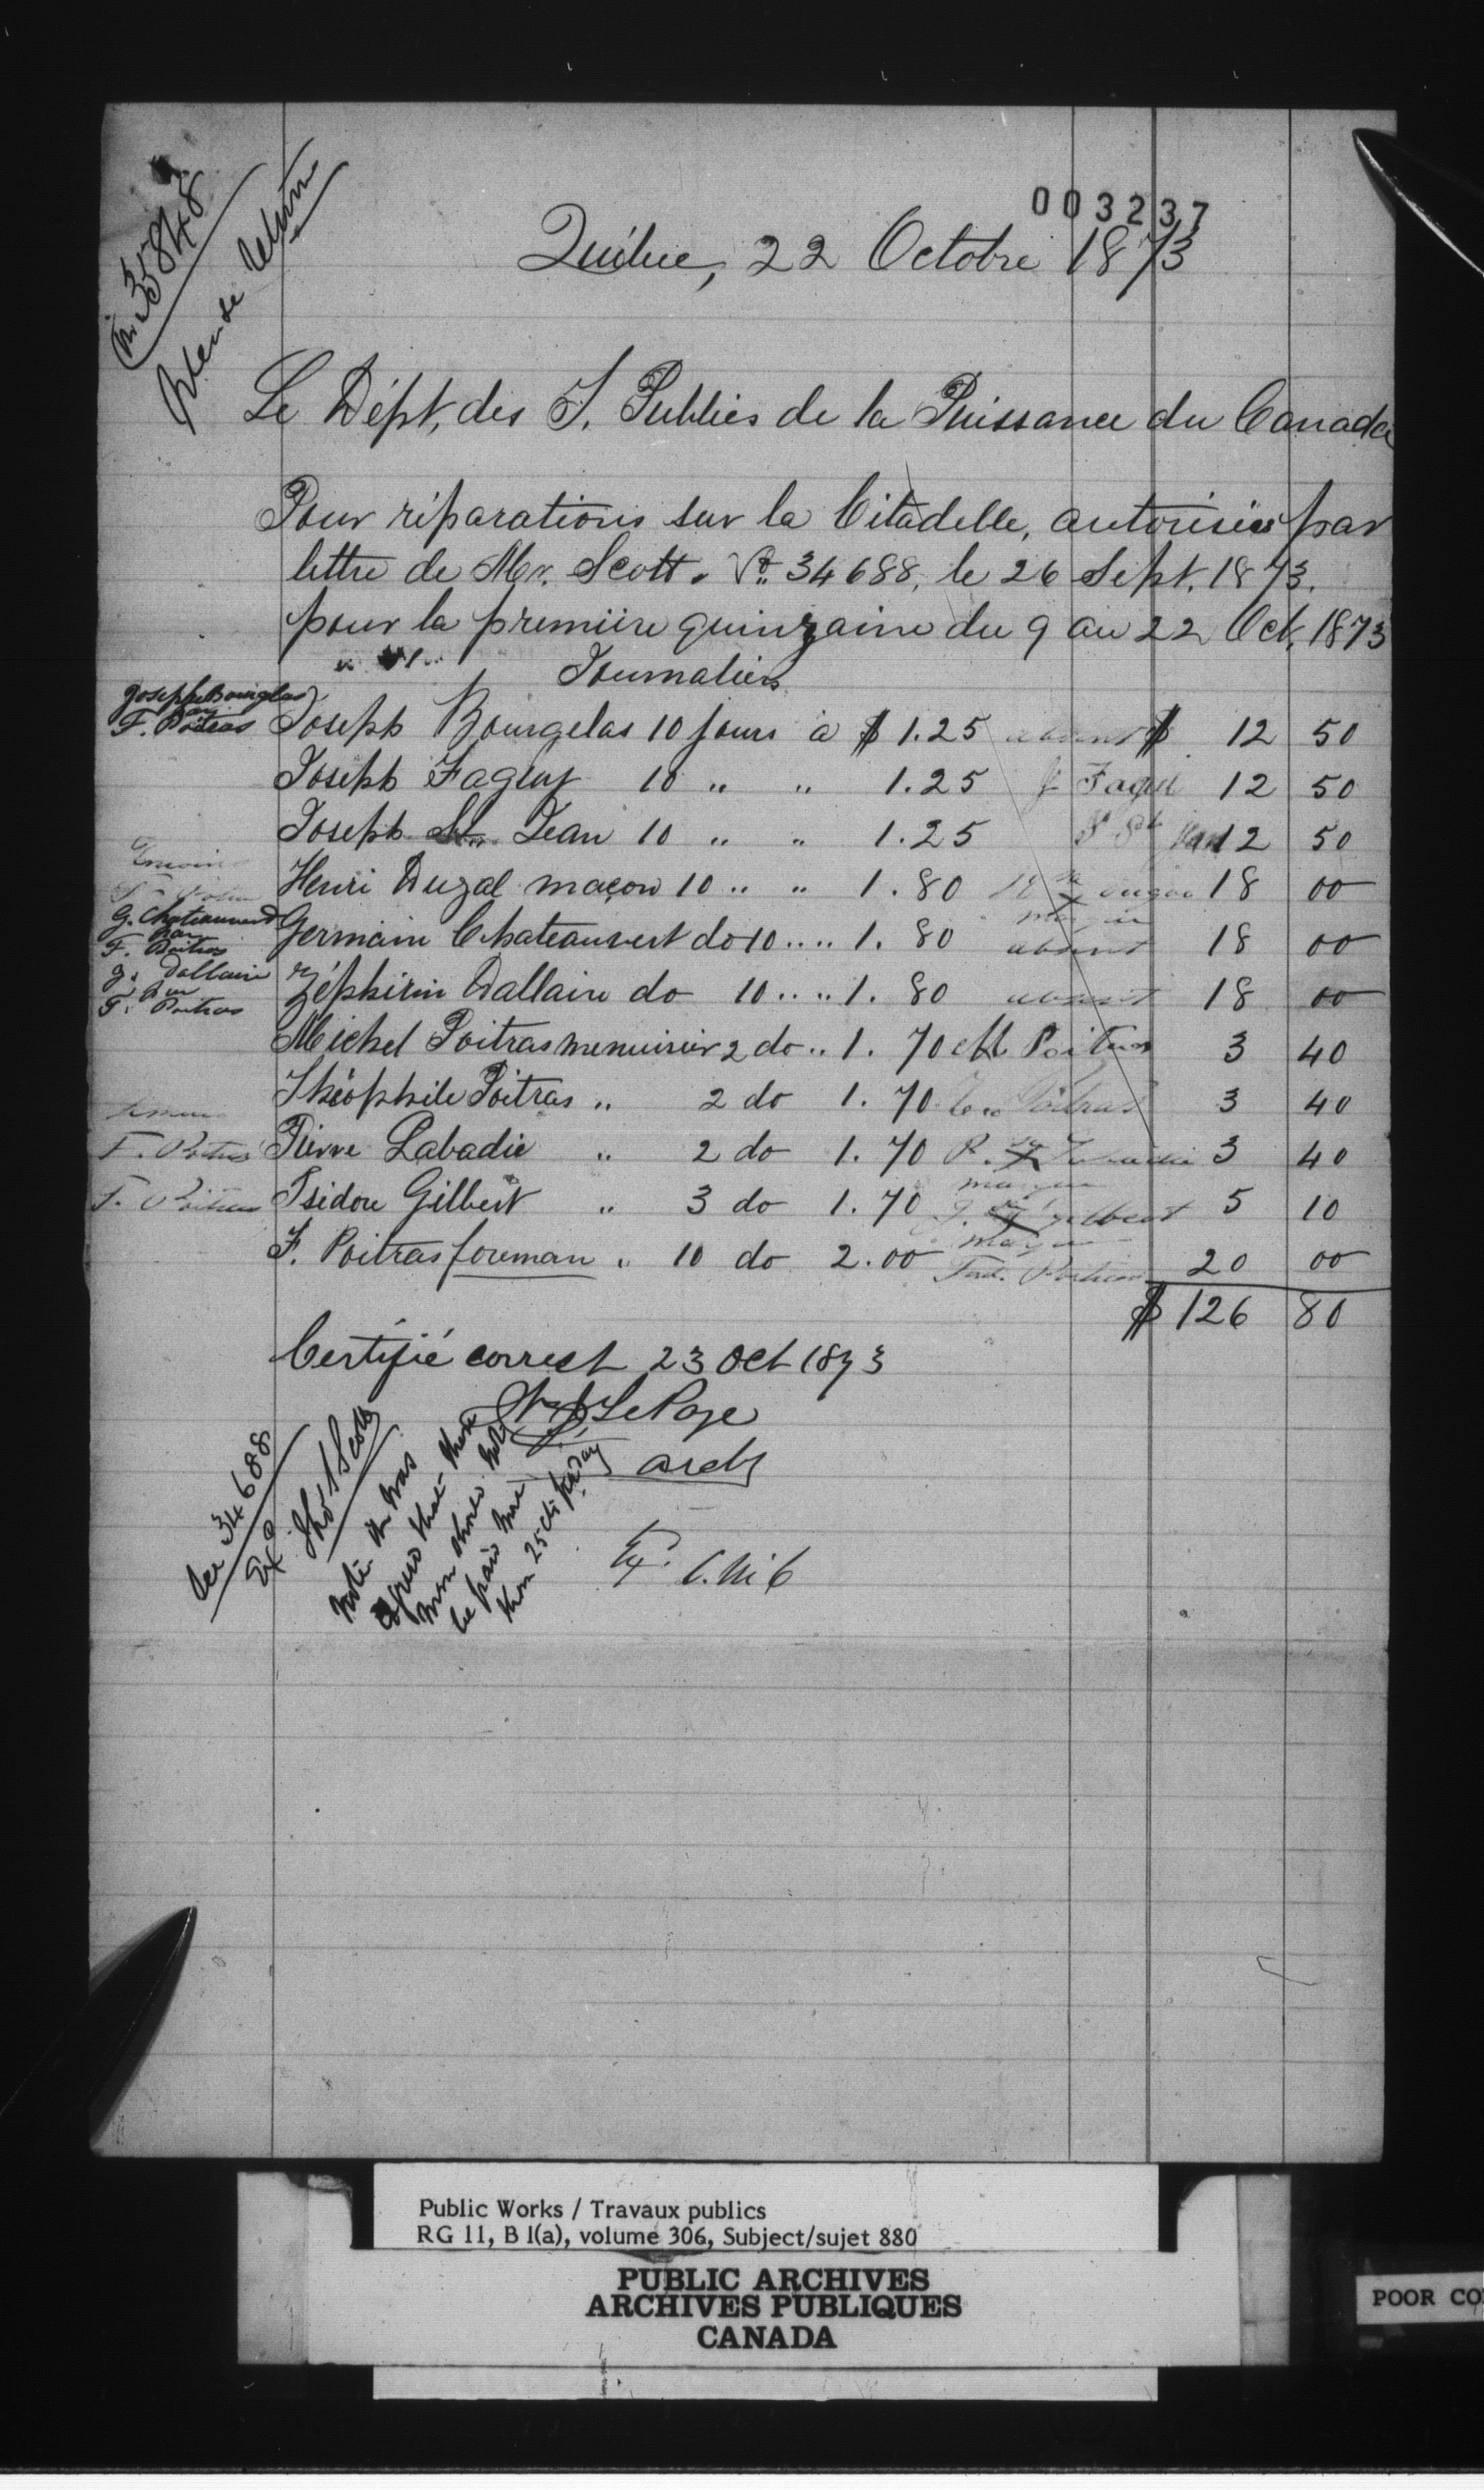 003237
No 35848
Please return
Québec, 22 Octobre 1873
Le Dépt, des T. Publics de la Puissance du Canada
Pour réparations sur la Citadelle, autorisées par
lettre de Mr. Scott. No. 34688, le 26 Sept. 1873.
pour la première quinzaine du 9 au 22 Oct, 1873
Journaliers
Joseph Bourgelas par F. Poitras Joseph Bourgelas 10 jours à $ 1.25 absent $ 12 50
Joseph Faguy 10 " " 1.25 J Fagui 12 50
Joseph St. Jean 10 " " 1.25 St Jean 12 50
Témoin F. Poitras Henri Duzal maçon 10 " " 1.80 sa marque 18 00
G. Chateauvert par F. Poitras Germain Chateauvert do 10 " " 1.80 absent 18 00
Z. Dallaire par F. Poitras Zéphirin Dallaire do 10 " " 1.80 absent 18 00
Michel Poitras menuisier 2 do " 1.70 M Poitras 3 40
Théophile Poitras " 2 do 1.70 Poitras 3 40
Témoin F. Poitras Pierre Labadie " 2 do 1.70 P. sa X Labadie marque 3 40
F. Poitras Isidore Gilbert " 3 do 1.70 sa X Gilbert marque 5 10
F. Poitras foreman " 10 do 2.00 Ferd. Poitras 20 00
$ 126 80
Certifié correct 23 Oct 1873
LePage
archt
See 34688
Ex Thos S Scott
Note it was
agreed that these
men should not
be paid more
than 25 cts per day
Ex.
Public Works / Travaux publics
RG 11, B 1(a), volume 306, Subject/sujet 880
PUBLIC ARCHIVES
ARCHIVES PUBLIQUES
CANADA
POOR CO